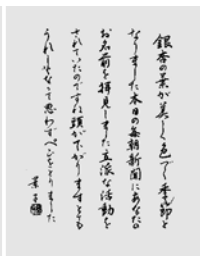 銀杏の葉が美しく色づく季節と
なりました本日の毎朝新聞にあなたの
お名前を拝見しました立派な活動を
されていたのですね頭が下がりますとても
うれしくなって思わずペンをとりました